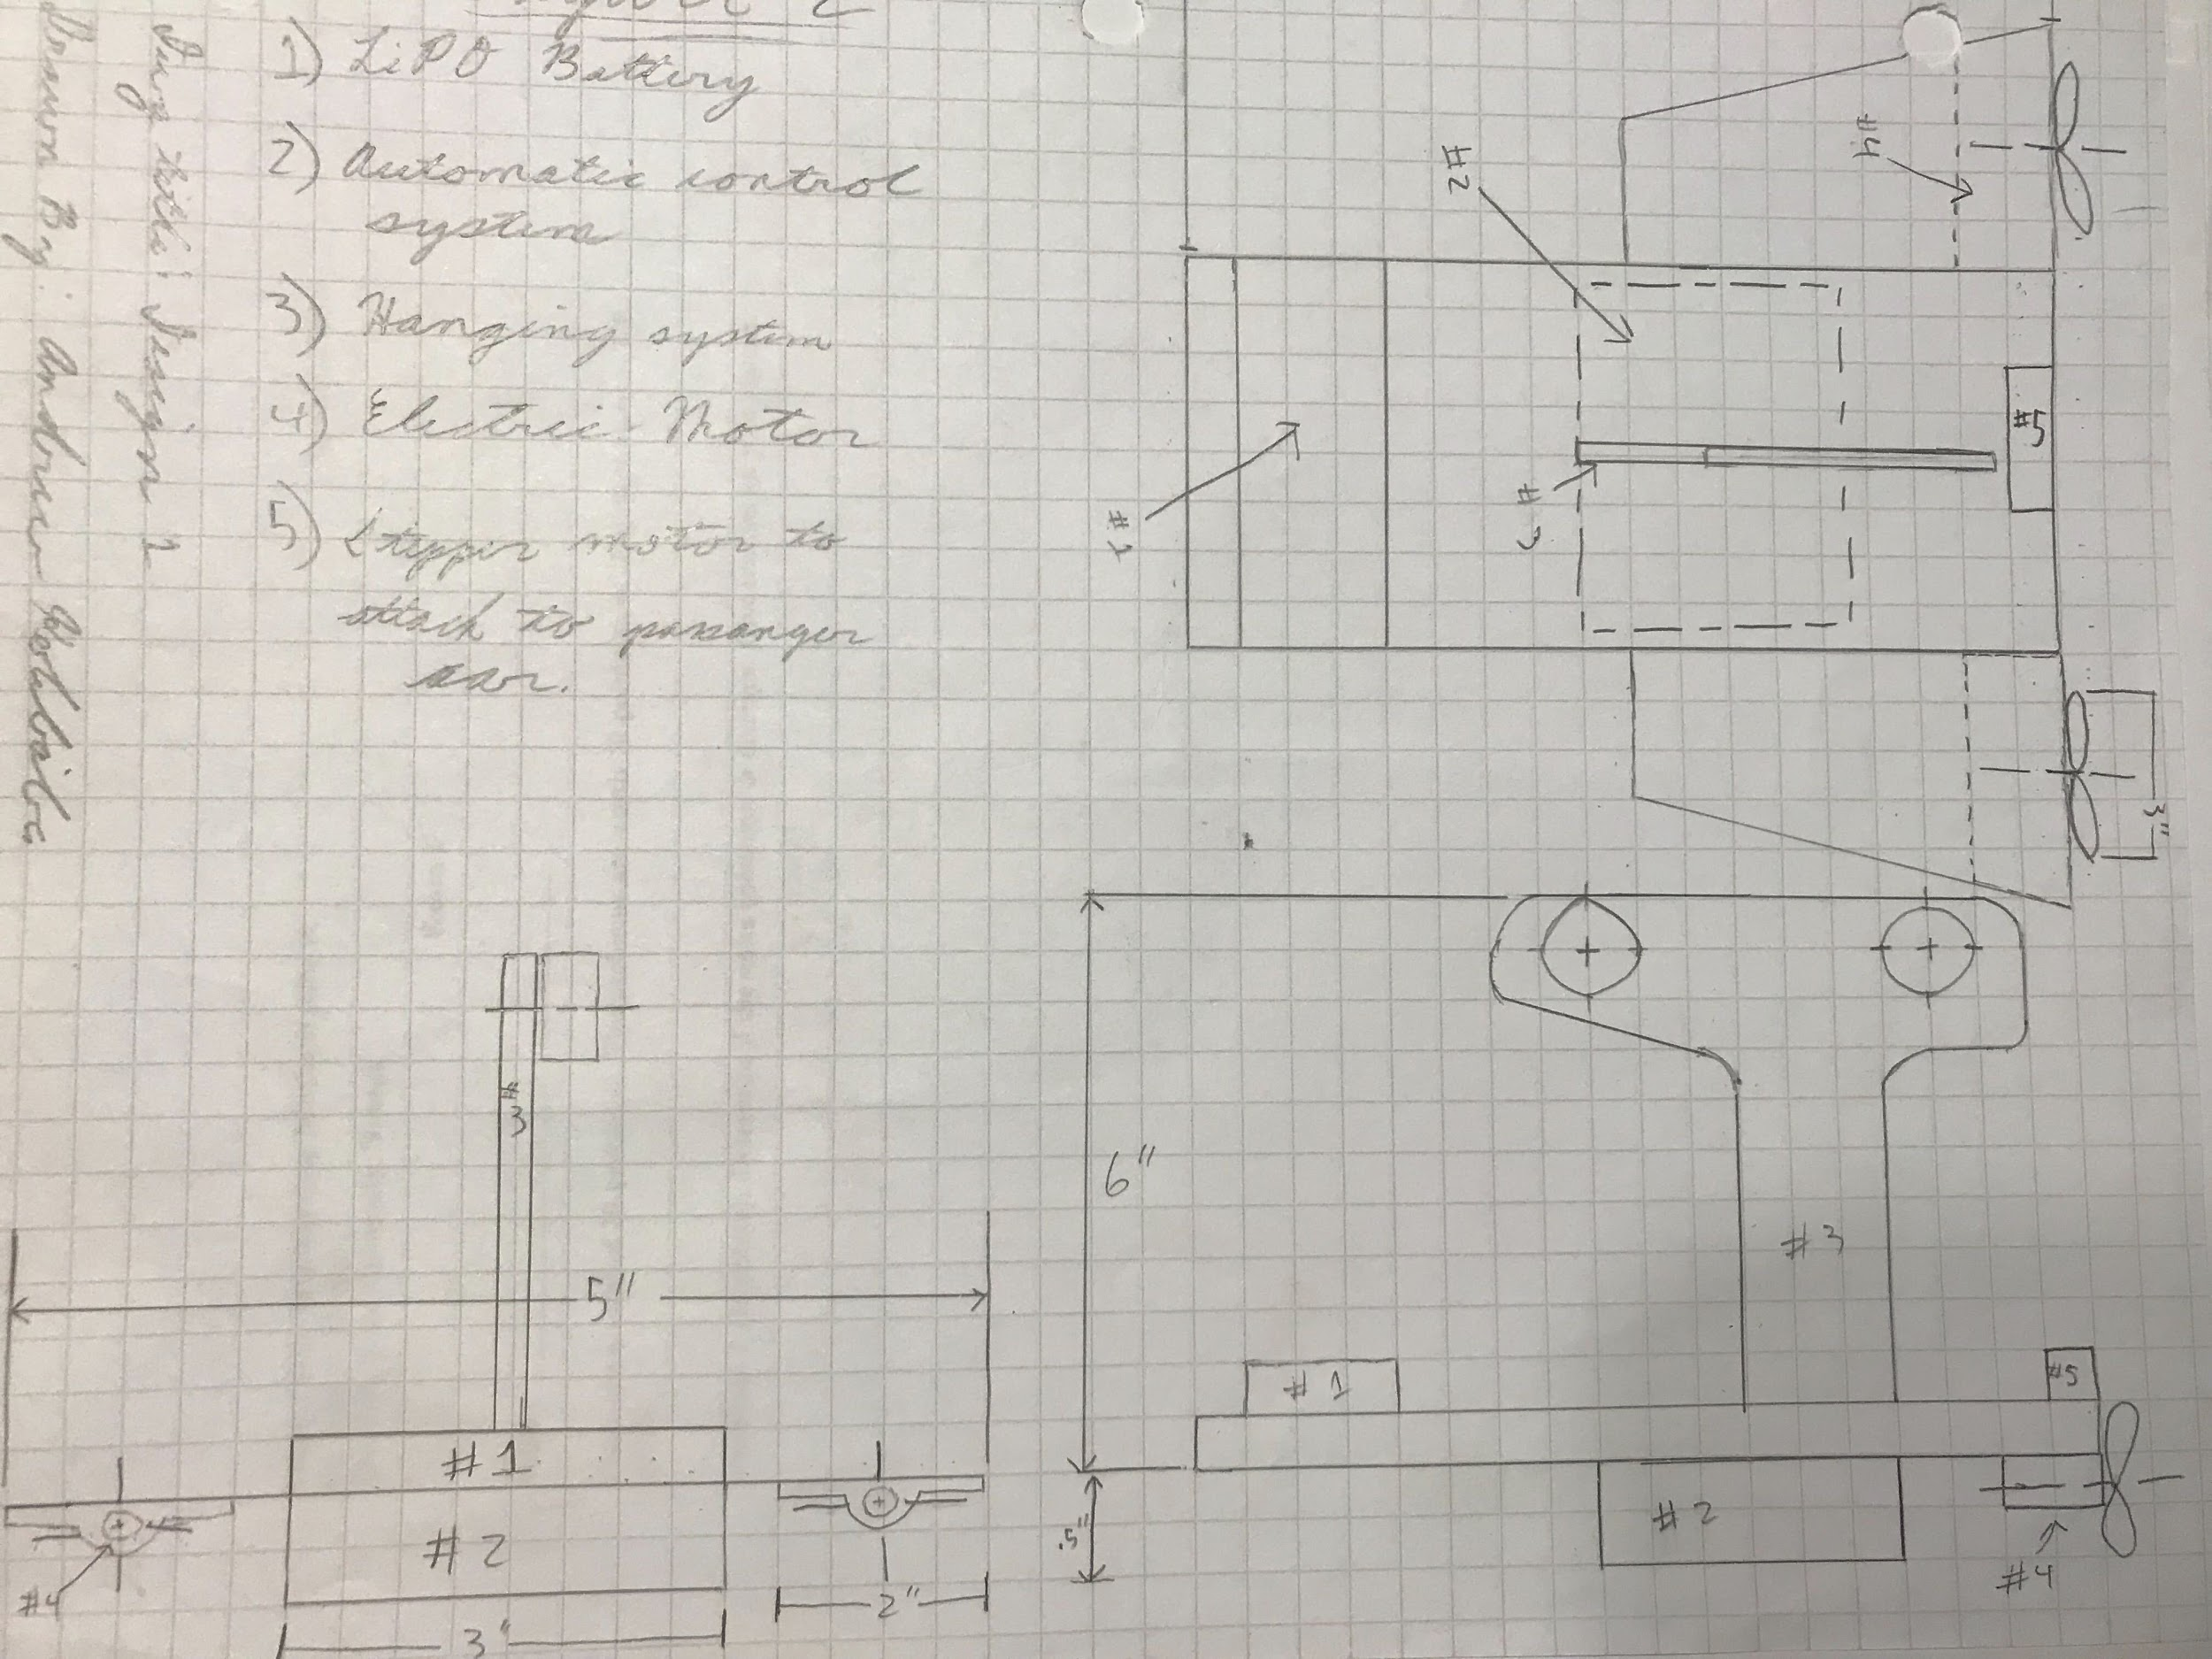 1) LiPO Battery
2) Automatic control
system
3) Hanging system
4) Electric Motor
5) Stepper motor to
attach to passanger
car.
Design 2
Drawn By: Andrew
#4
#2
#5
#3
#1
3"
6"
#3
#1
#5
.5"
#2
#4
#3
5"
#1
#2
#4
2"
3"